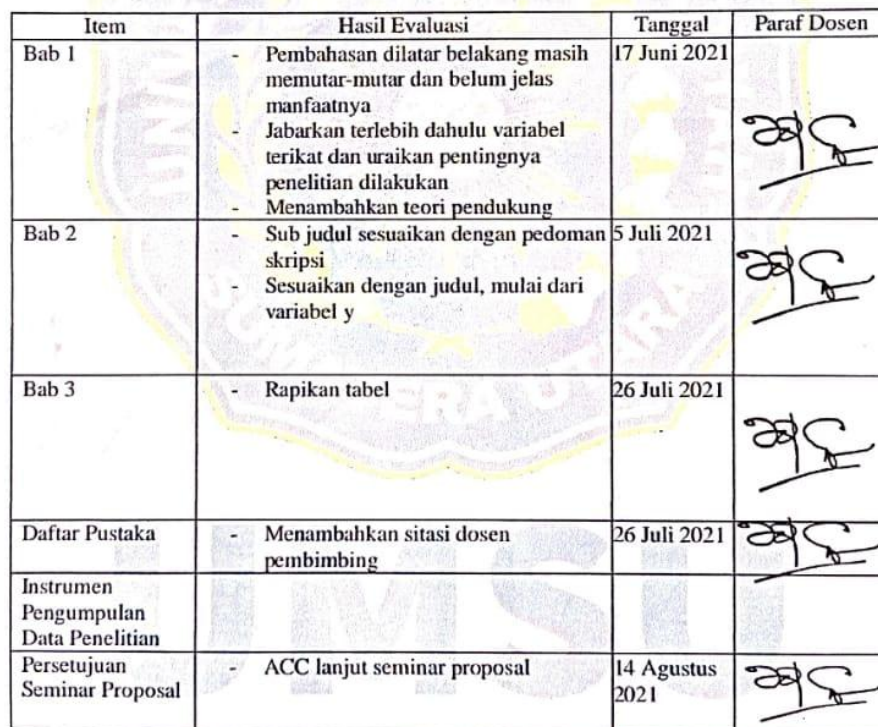 Item Hasil Evaluasi Tanggal Paraf Dosen
Bab 1 - Pembahasan dilatar belakang masih 17 Juni 2021
memutar-mutar dan belum jelas
manfaatnya
- Jabarkan terlebih dahulu variabel
terikat dan uraikan pentingnya
penelitian dilakukan
- Menambahkan teori pendukung
Bab 2 - Sub judul sesuaikan dengan pedoman 5 Juli 2021
skripsi
- Sesuaikan dengan judul, mulai dari
variabel y
Bab 3 - Rapikan tabel 26 Juli 2021
Daftar Pustaka - Menambahkan sitasi dosen 26 Juli 2021
pembimbing
Instrumen
Pengumpulan
Data Penelitian
Persetujuan - ACC lanjut seminar proposal 14 Agustus
Seminar Proposal 2021
SUMATERA UTARA
UMSU